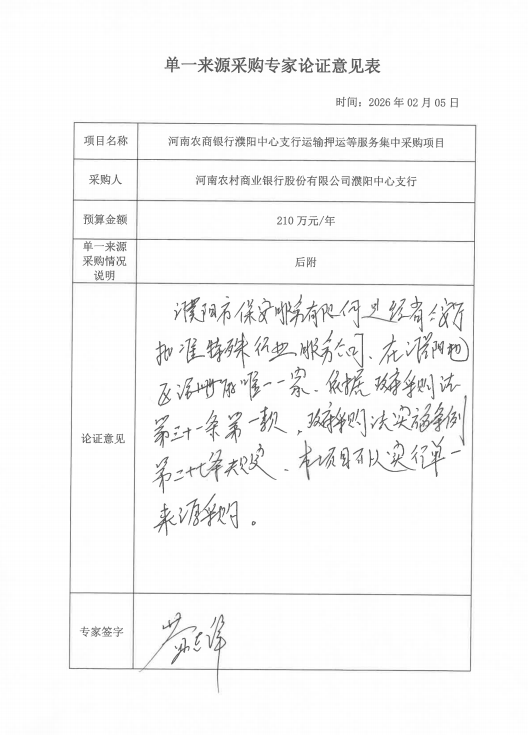 单一来源采购专家论证意见表
时间：2026 年 02 月 05 日
项目名称
河南农商银行濮阳中心支行运输押运等服务集中采购项目
采购人
河南农村商业银行股份有限公司濮阳中心支行
预算金额
210 万元/年
单一来源
采购情况
说明
后附
论证意见
濮阳市保安服务有限公司是经省公安厅
批准特殊行业服务公司、在濮阳地
区注册的唯一一家、依据政府采购法
第三十一条第一款，政府采购法实施条例
第二十七条规定、本项目可以实行单一
来源采购。
专家签字